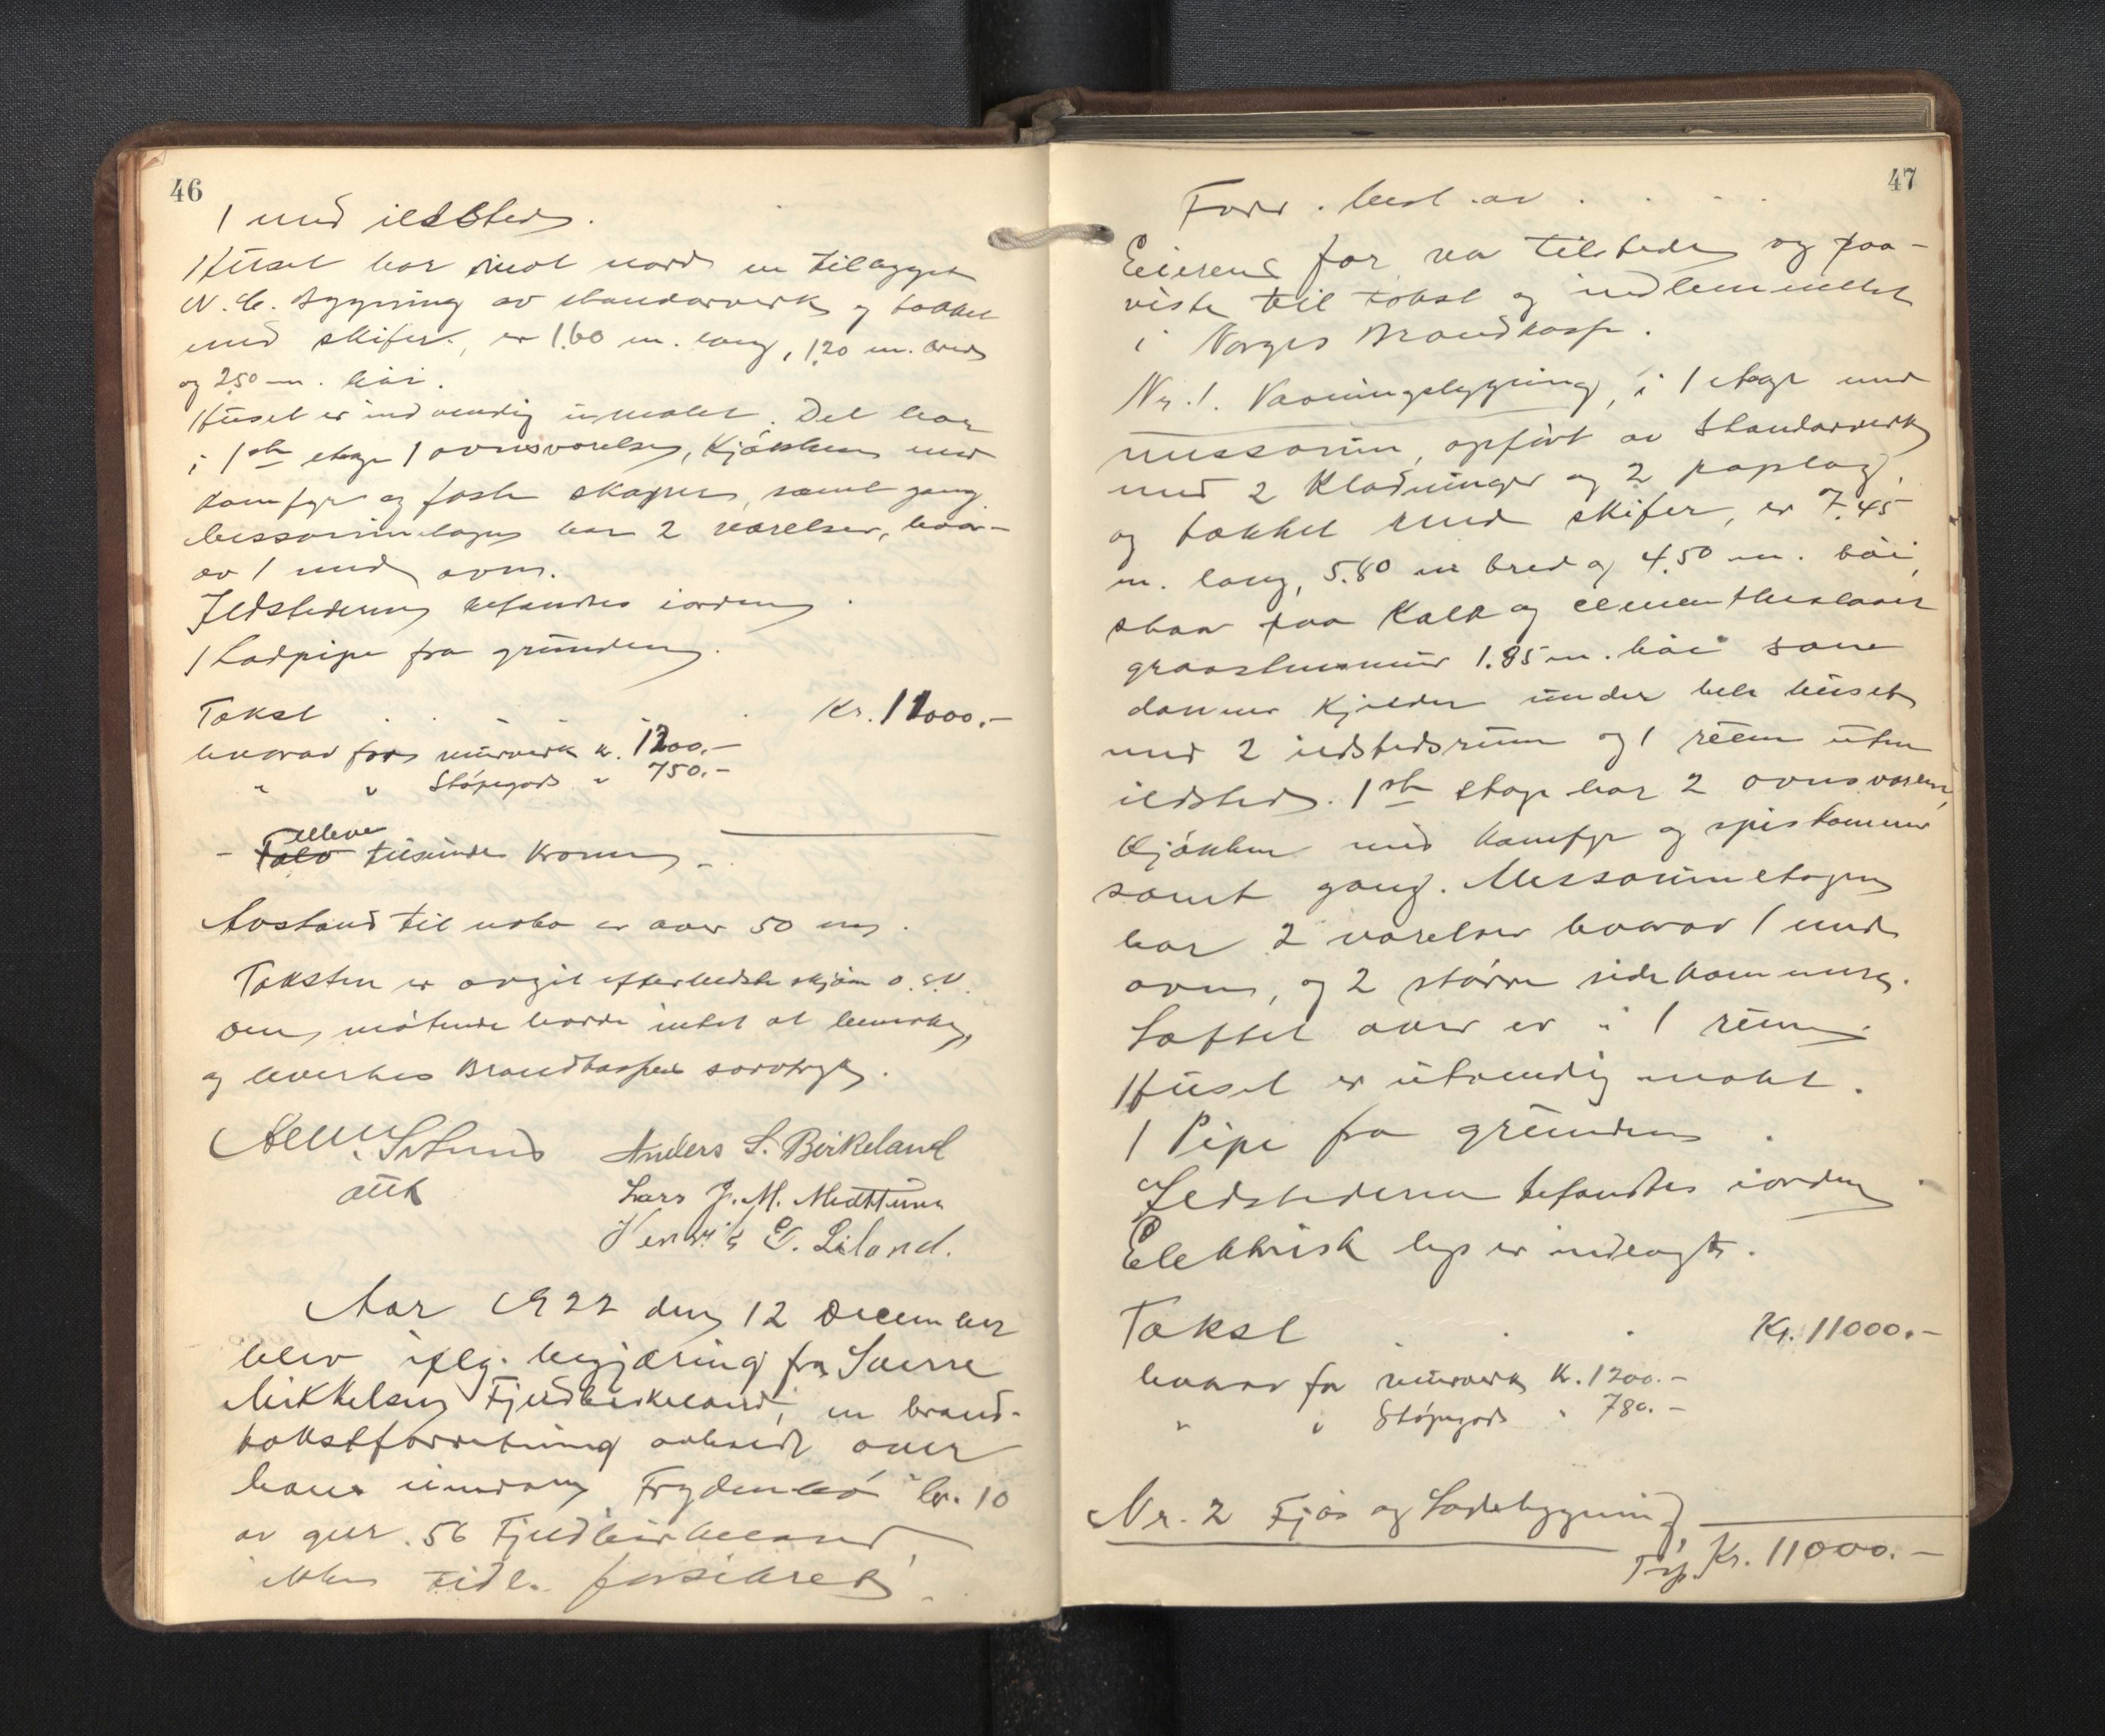 46
1 med ildsted.
Huset har mot nord en tilbygget
W.C. bygning av standarverk og tækket
med skifer, er 1.60 m. lang, 1.20 m. bred
og 2.50 m. høi.
Huset er indvendig umalet. Det har
i 1ste etage 1 ovnsværelse, Kjøkken med
komfyr og faste skaper, samt gang.
Messaninetagen har 2 værelser, hvor-
av 1 med ovn.
Ildstederne befandtes iorden.
1 Lodpipe fra grunden.
Takst . . . . Kr. 11000.-
hvorav for murverk kr. 1200.-
" " Støpegods " 750.-
elleve
- Tolv tusinde Kroner -
Avstand til nabo er over 50 m.
Taksten er avgit efter bedste skjøn o.s.v.
den møtende hadde intet at bemerke,
og leverkes Brandkassens særtryk.
Anders L. Birkeland
att Lars J. M. Midttun
Henrik G. Liland.
Aar 1922 den 12 December
blev iflg. begjæring fra Sverre
Mikkelsen Fjeldbirkeland, en brand-
takstforretning avholdt over
hans eiendom Frydenbø br. 10
av gnr. 56 Fjeldbirkeland,
ikke tidl. forsikret.
47
Forr. best. av . . . .
Eierens far var tilstede og paa-
viste til takst og indlemmelse
i Norges Brandkasse.
Nr. 1. Vaaningsbygning, i 1 etage med
messanin, opført av Standarverk
med 2 Klædninger og 2 paplag,
og tækket med skifer, er 7.45
m. lang, 5.80 m bred og 4.50 m. høi,
staar paa Kalk og cementhuslaaet
graastensmur 1.85 m. høi som
danner Kjelder under hele huset
med 2 ildstedsrum og 1 rum uten
ildsted. 1ste etage har 2 ovnsværelser,
Kjøkken med Komfyr og spiskammer
samt gang. Messaninetagen
har 2 værelser hvorav 1 med
ovn, og 2 større sidekammere.
Loftet over er i 1 rum.
Huset er utvendig malt.
1 Pipe fra grunden.
Ildstederne befandtes iorden.
Elektrisk lys er indlagt.
Takst . . . Kr. 11000.-
hvorav for murverk Kr. 1200.-
" " Støpegods " 780.-
Nr. 2 Fjøs og Ladebygning,
Trsp. Kr. 11000.-